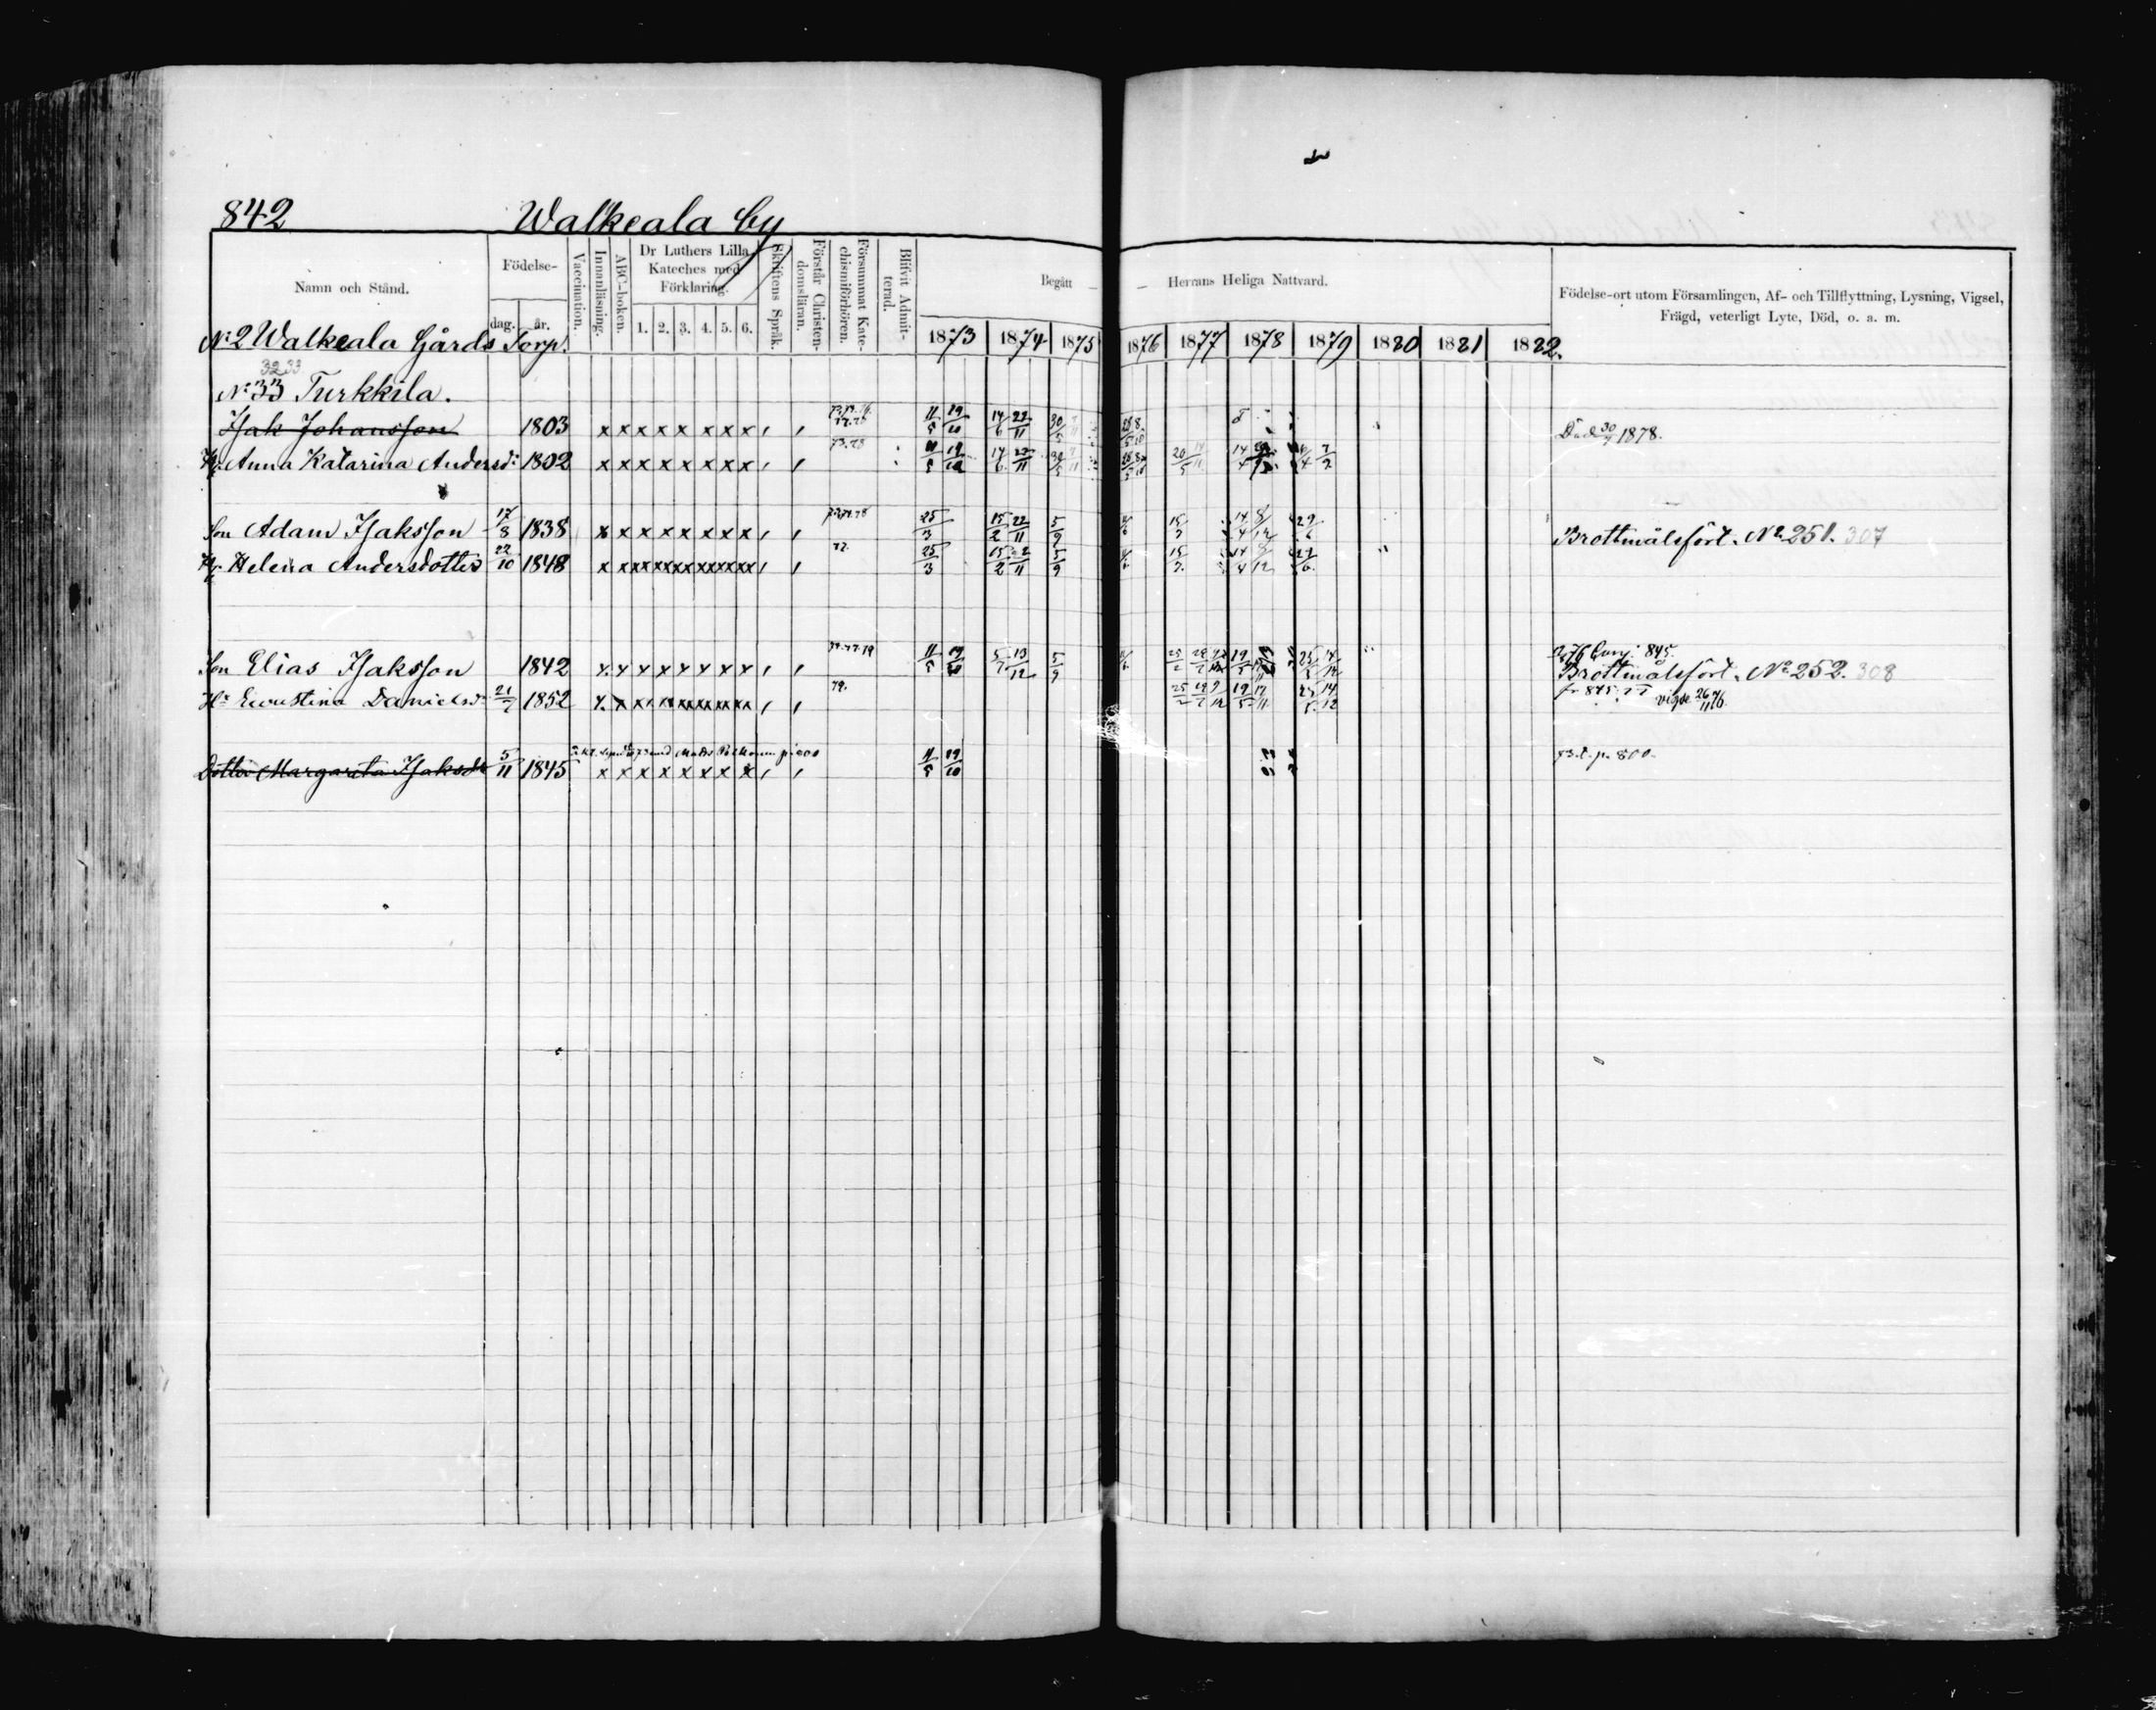 842 Walkeala by
Namn och Stånd.
Födelse-
dag. år.
Vaccination.
Innanläsning.
ABC-boken.
Dr Luthers Lilla
Kateches med
Förklaring.
1. 2. 3. 4. 5. 6.
Skriftens Språk.
Förstår Christen-
domsläran.
Försummat Kate-
chismiförhören.
Blifvit Admit-
terad.
Begått — — Herrans Heliga Nattvard.
1873 1874 1875 1876 1877 1878 1879 1880 1881 1882.
Födelse-ort utom Församlingen, Af- och Tillflyttning, Lysning, Vigsel,
Frägd, veterligt Lyte, Död, o. a. m.
No 2 Walkeala Gårds Torp.
32 33
No 33 Turkkila.
Isak Johansson 1803 x x x x x x x x 11/5 19/10 14/6 22/11 30/5 Död 1878.
Hu Anna Katarina Andersd: 1802 x x x x x x x x 11/5 19/10 14/6 22/11 30/5 20/5
Son Adam Isaksson 17/8 1838 x x x x x x x x 25/3 15/2 22/11 5/9 14/4 8/12 29/6 Brottmålsfört. No 251. 307
Hu Helena Andersdotter 22/10 1848 77. 25/3 15/2 5/9 14/4 29/6
Son Elias Isaksson 1842 x x x x x x x x 11/5 19/10 5/7 13/12 5/9 845.
Brottmålsfört. No 252. 308
Hu Danielsdr 21/7 1852 79. 25/2 19/5 17/11 25/5 14/12 fr 845. vigde
Dotter Margareta Isaksdr 5/11 1845 x x x x x x x x 11/5 19/10 p. 800.